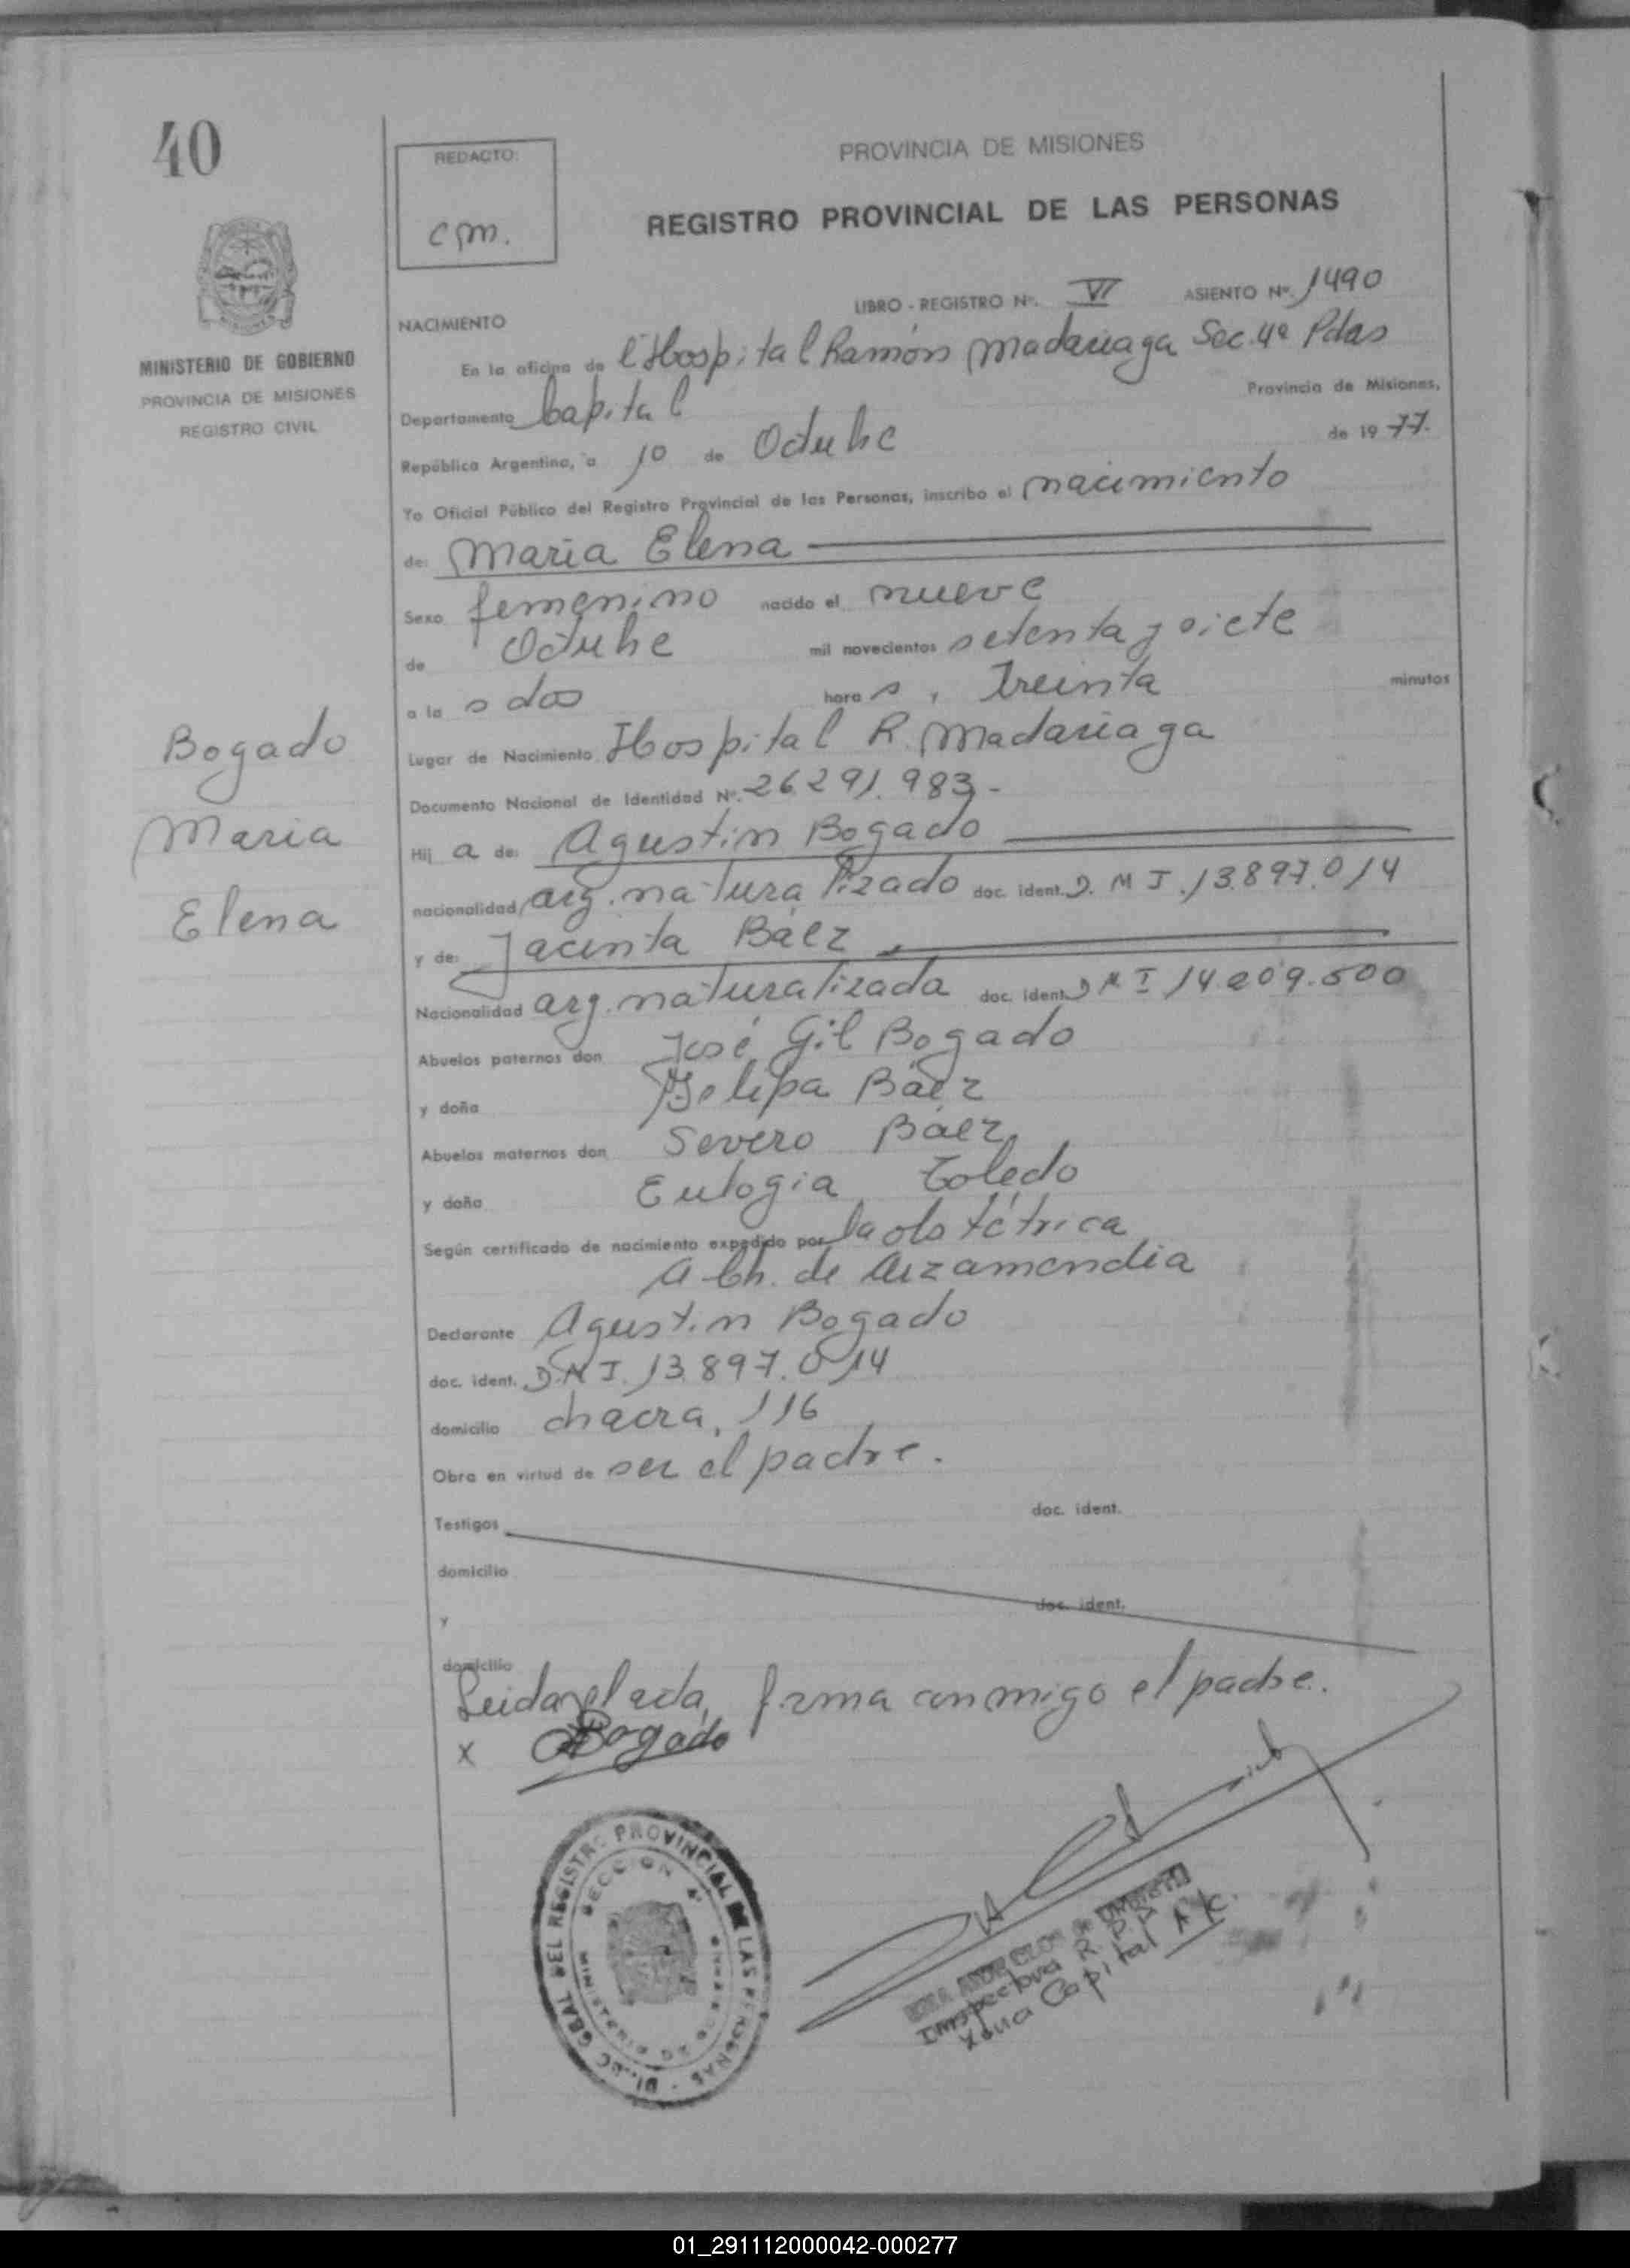 40
REDACTO:
cm.
PROVINCIA DE MISIONES
REGISTRO PROVINCIAL DE LAS PERSONAS
LIBRO - REGISTRO Nº. VI ASIENTO Nº. 1490
NACIMIENTO
MINISTERIO DE GOBIERNO
PROVINCIA DE MISIONES
REGISTRO CIVIL
En la oficina de l'Hospital Ramón Madariaga Sec. 4ª Pdas
Provincia de Misiones,
Departamento Capital
República Argentina, a 10 de Octubre de 1977.
Yo Oficial Público del Registro Provincial de las Personas, inscribo el nacimiento
de: Maria Elena
Sexo femenino nacido el nueve
de Octubre mil novecientos setenta y siete
a la s dos hora s, treinta minutos
Lugar de Nacimiento Hospital R. Madariaga
Documento Nacional de Identidad Nº. 26.291.983-
Bogado
Maria
Elena
Hij a de: Agustin Bogado
nacionalidad arg. naturalizado doc. ident. D.N.I. 13.897.014
y de: Jacinta Báez
Nacionalidad arg. naturalizada doc. ident. DNI 14.209.500
Abuelos paternos don José Gil Bogado
y doña Báez
Abuelos maternos don Severo Báez
y doña Eulogia Toledo
Según certificado de nacimiento expedido por la obstétrica
A Ch. de Arzamendia
Declarante Agustin Bogado
doc. ident. D.N.I. 13.897.014
domicilio chacra, 116
Obra en virtud de ser el padre.
Testigos doc. ident.
domicilio
y doc. ident.
domicilio
Leida el acta, firma conmigo el padre.
x Bogado
REGISTRO PROVINCIAL DE LAS PERSONAS
SECCION 4ª
Inspectora R.P.P.
Zona Capital A/C.
01_291112000042-000277